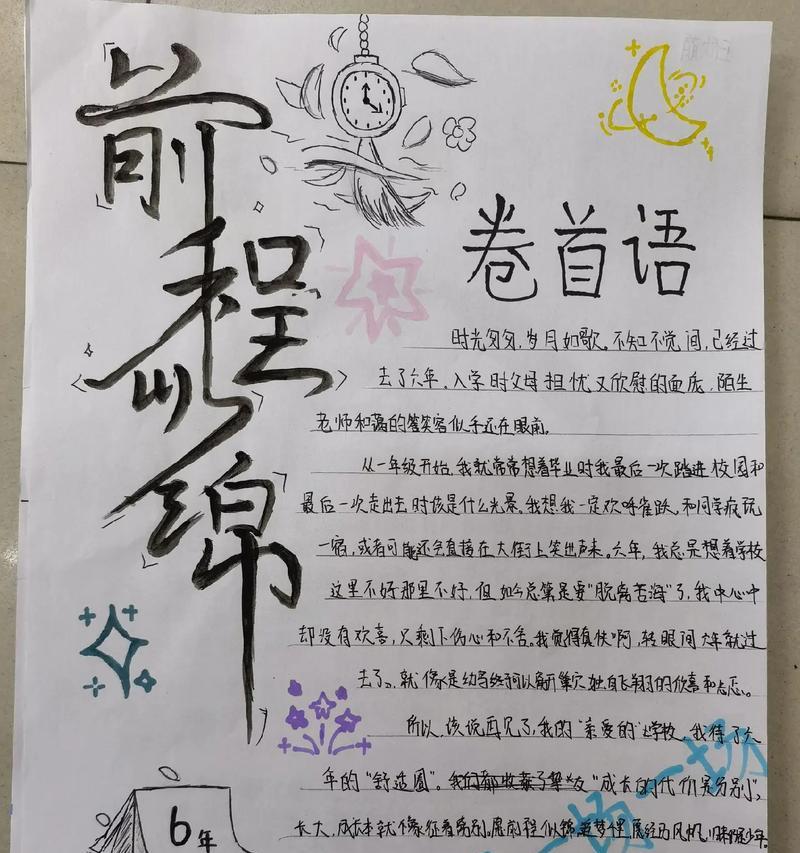 前程似锦
卷首语
时光匆匆，岁月如歌。不知不觉间，已经过
去了六年。入学时父母担忧又欣慰的面庞，陌生
老师和蔼的笑容似乎还在眼前。
从一年级开始，我就常常想着毕业时我最后一次踏进校园和
最后一次走出去时该是什么光景。我想我一定欢呼雀跃，和同学疯玩
一宿，或者可能还会直接在大街上笑出声来。六年，我总是想着学校
这里不好那里不好，但如今总算是要“脱离苦海”了，我中心中
却没有欢喜，只剩下伤心和不舍。我觉得真快啊，转眼间六年就过
去了，就像是幼鸟终于可以离开巢穴独自飞翔的欣喜和忐忑。
所以，该说再见了，我的“亲爱的”学校。我待了六
年的“舒适圈”。“成长的代价是分别”，
长大，成本就像征着离别。愿前程似锦，追梦
一场
6年